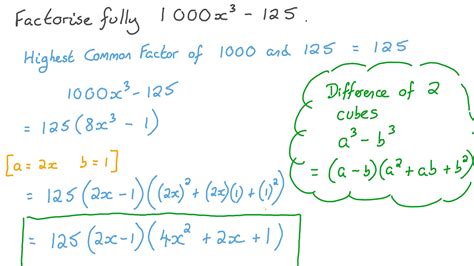 Factorise fully 1000x³ - 125.
Highest Common Factor of 1000 and 125 = 125
1000x³ - 125
= 125(8x³ - 1)
[a = 2x b = 1]
= 125(2x-1)((2x)² + (2x)(1) + (1)²)
= 125(2x-1)(4x² + 2x + 1)
Difference of 2
cubes
a³ - b³
= (a-b)(a² + ab + b²)